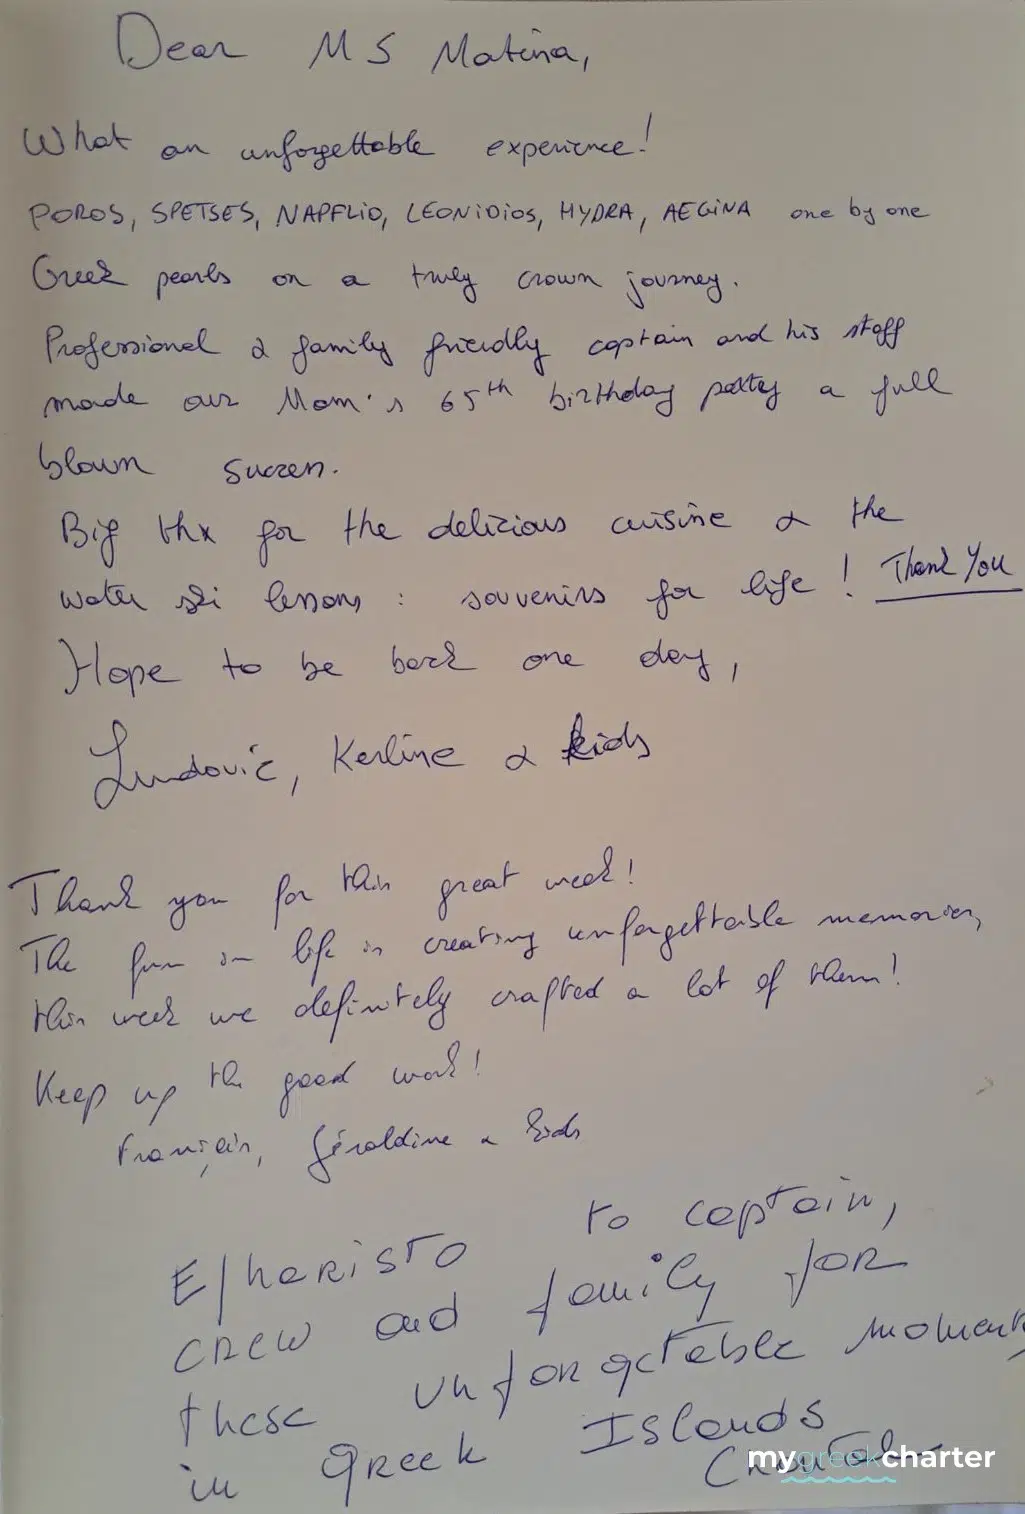 Dear MS Matina,
What an unforgettable experience!
POROS, SPETSES, NAPFLIO, LEONIDIOS, HYDRA, AEGINA one by one
Greek pearls on a truly crown journey.
Professional & family friendly captain and his staff
made our Mom's 65th birthday party a full
blown success.
Big thx for the delicious cuisine & the
water ski lessons : souvenirs for life ! Thank You
Hope to be back one day,
Ludovic, Kerline & kids
Thank you for this great week!
The fun in life is creating unforgettable memories,
this week we definitely crafted a lot of them!
Keep up the good work!
Géraldine & kids
Efharisto to captain,
crew and family for
these unforgetable moments
in Greek Islands
mygreekcharter